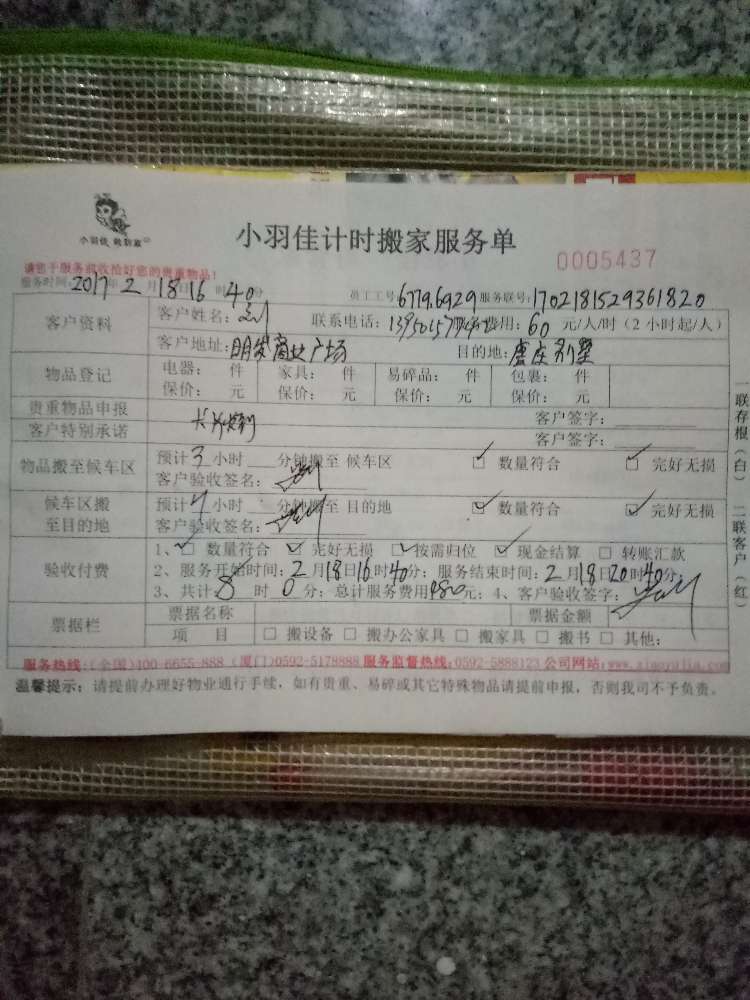 小羽佳计时搬家服务单
小羽佳
0005437
请您于服务前收拾好您的贵重物品!
服务时间: 2017年 2月 18日 16时 40分 员工工号: 6779.6929 服务联号: 1702181529361820
客户资料 客户姓名: 联系电话: 服务费用: 60 元/人/时 (2 小时起/人)
客户地址: 明发商业广场 目的地: 唐庄别墅
物品登记 电器: 件 家具: 件 易碎品: 件 包裹: 件
保价: 元 保价: 元 保价: 元 保价: 元
贵重物品申报 客户签字:
客户特别承诺 客户签字:
物品搬至候车区 预计 3 小时 分钟搬至 候车区 数量符合 完好无损
客户验收签名:
候车区搬至目的地 预计 小时 分钟搬至 目的地 数量符合 完好无损
客户验收签名:
验收付费 1、 数量符合 完好无损 按需归位 现金结算 转账汇款
2、服务开始时间: 2月18日16时40分; 服务结束时间: 2月18日20时40分;
3、共计: 8 时 0 分; 总计服务费用 980 元; 4、客户验收签字:
票据栏 票据名称 票据金额
项 目 搬设备 搬办公家具 搬家具 搬书 其他:
服务热线: (全国)400-6655-888 (厦门)0592-5178888 服务监督热线: 0592-5888123 公司网站: www.xiaoyujia.com
温馨提示: 请提前办理好物业通行手续, 如有贵重、易碎或其它特殊物品请提前申报, 否则我司不予负责。
一联存根(白) 二联客户(红)